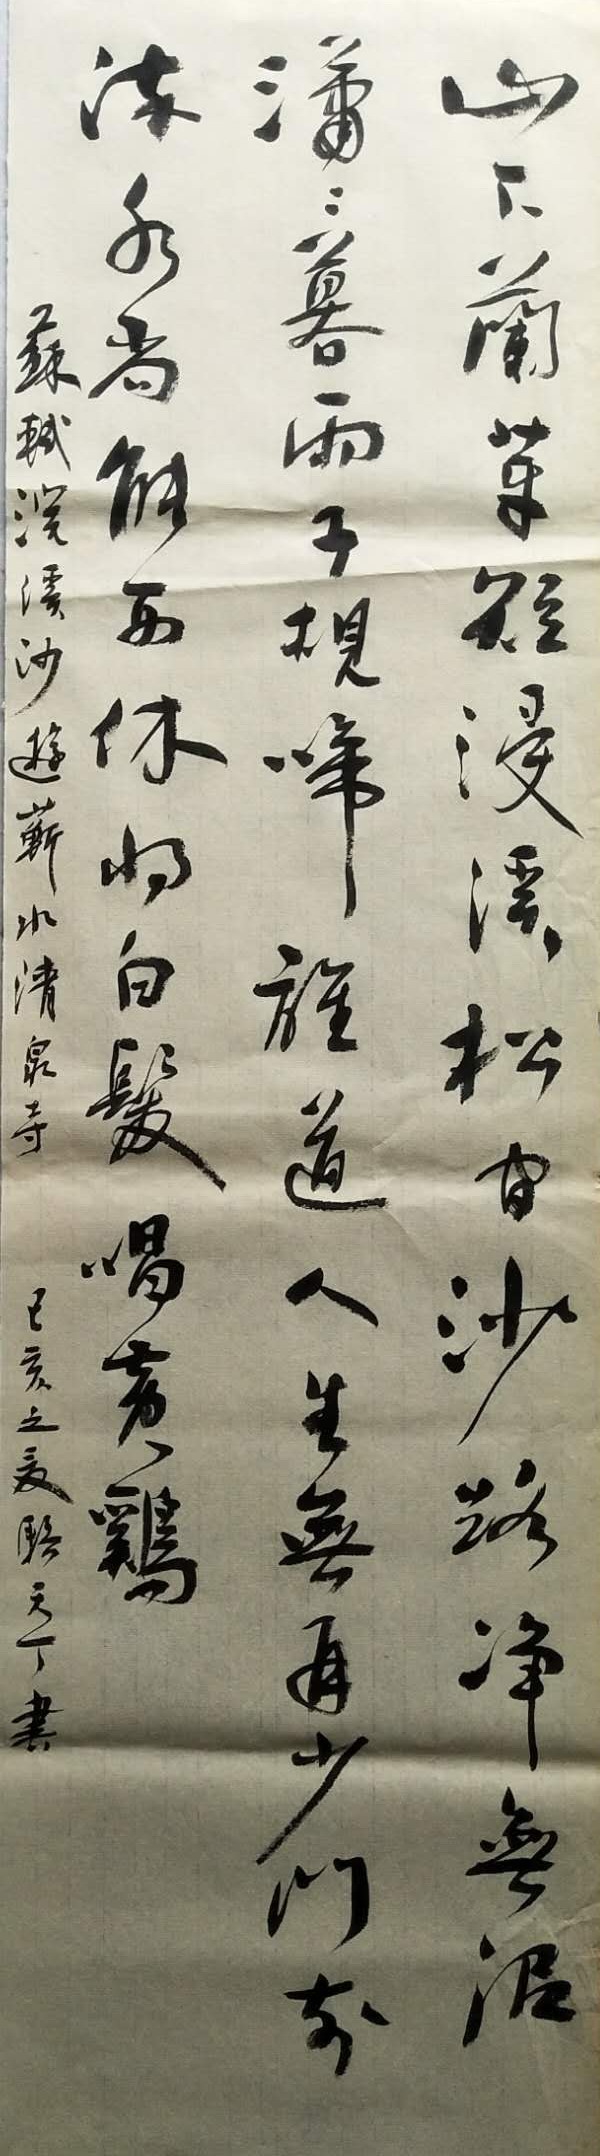 山下蘭芽短浸溪松间沙路净無泥
瀟々暮雨子規啼誰道人生無再少門前
流水尚能西休将白髮唱黄鷄
蘇軾浣溪沙遊蘄水清泉寺
己亥之夏駱天丁書